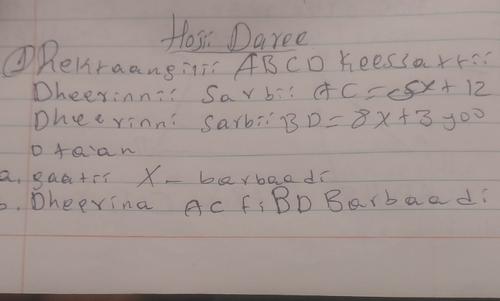 Hojii Daree
① Rektaangilii ABCD keessattii
Dheerinnii Sarbii AC = 5x + 12
Dheerinni Sarbii BD = 8x + 3 yoo
Ota'an
a. gaatii X - barbaadi
b. Dheerina AC fi BD Barbaadi